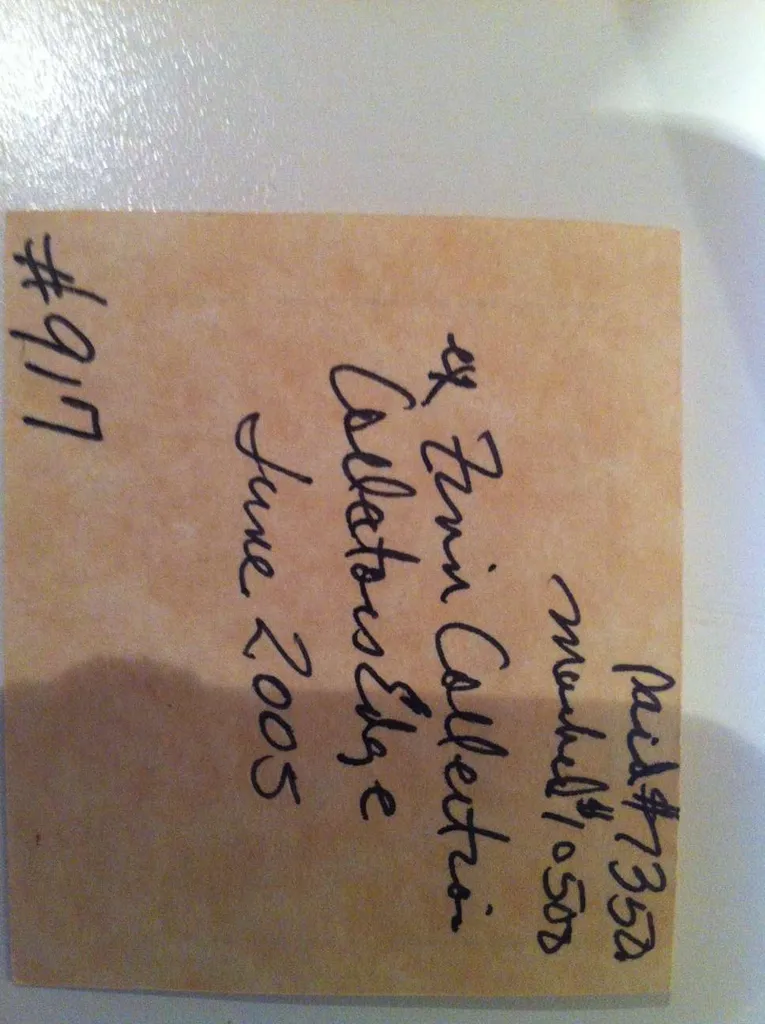 Paid $7350
marked $10500
ex Collection
Collators Edge
June 2005
#917